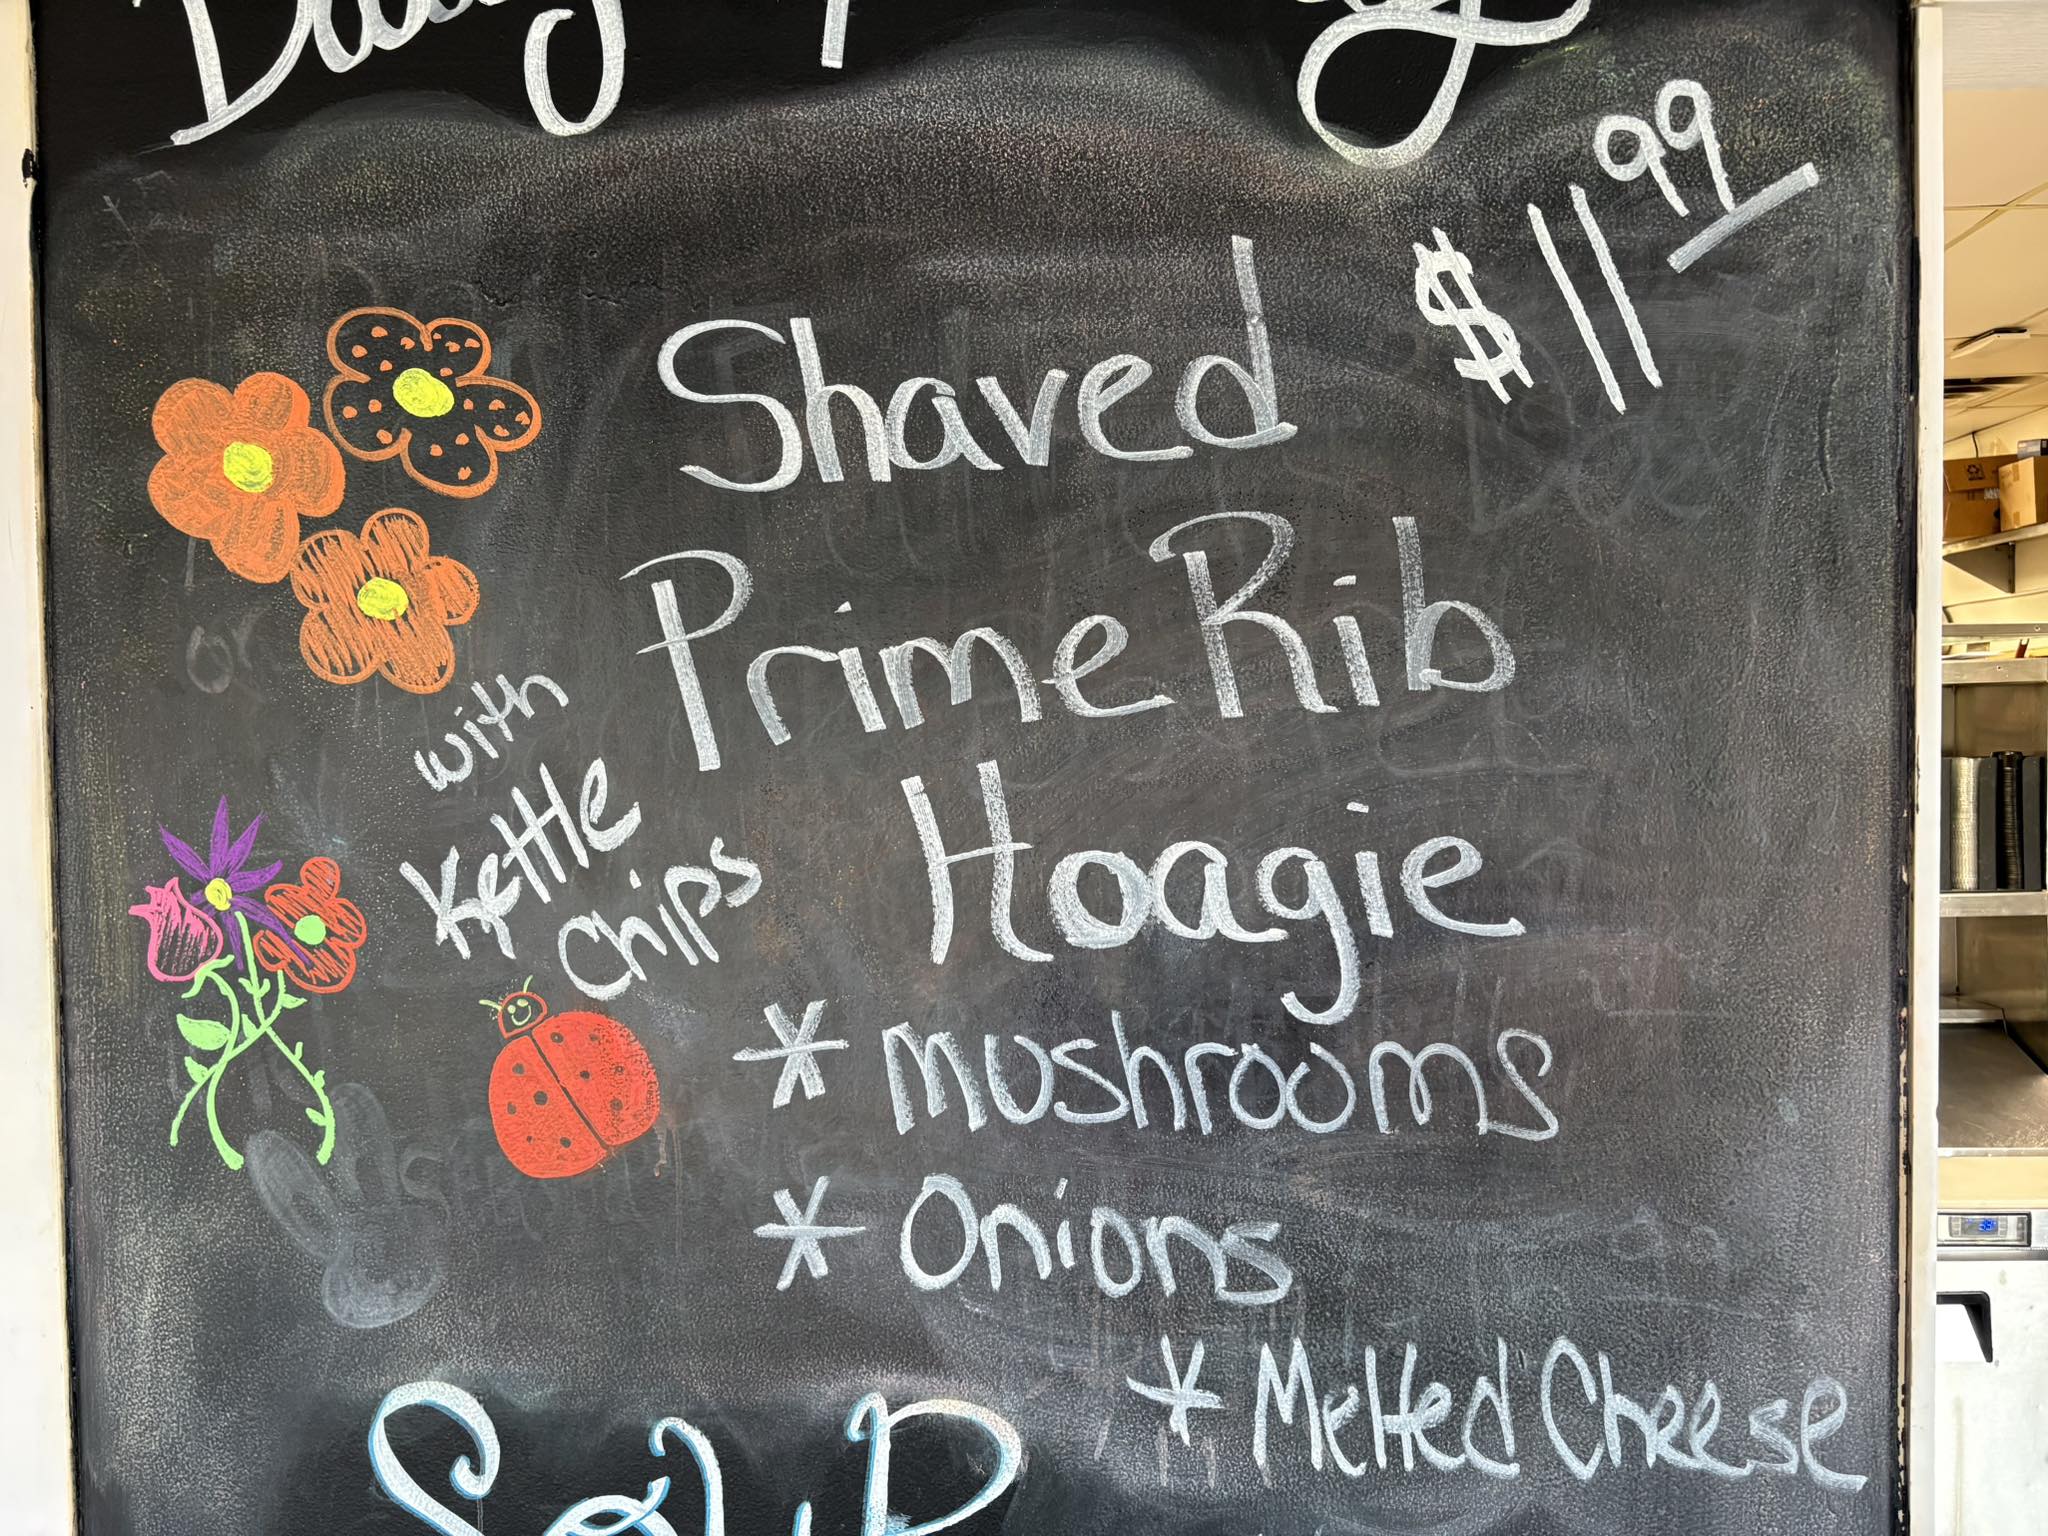 Daily
$11.99
Shaved
Prime Rib
Hoagie
with
Kettle
Chips
* Mushrooms
* Onions
* Melted Cheese
Soup